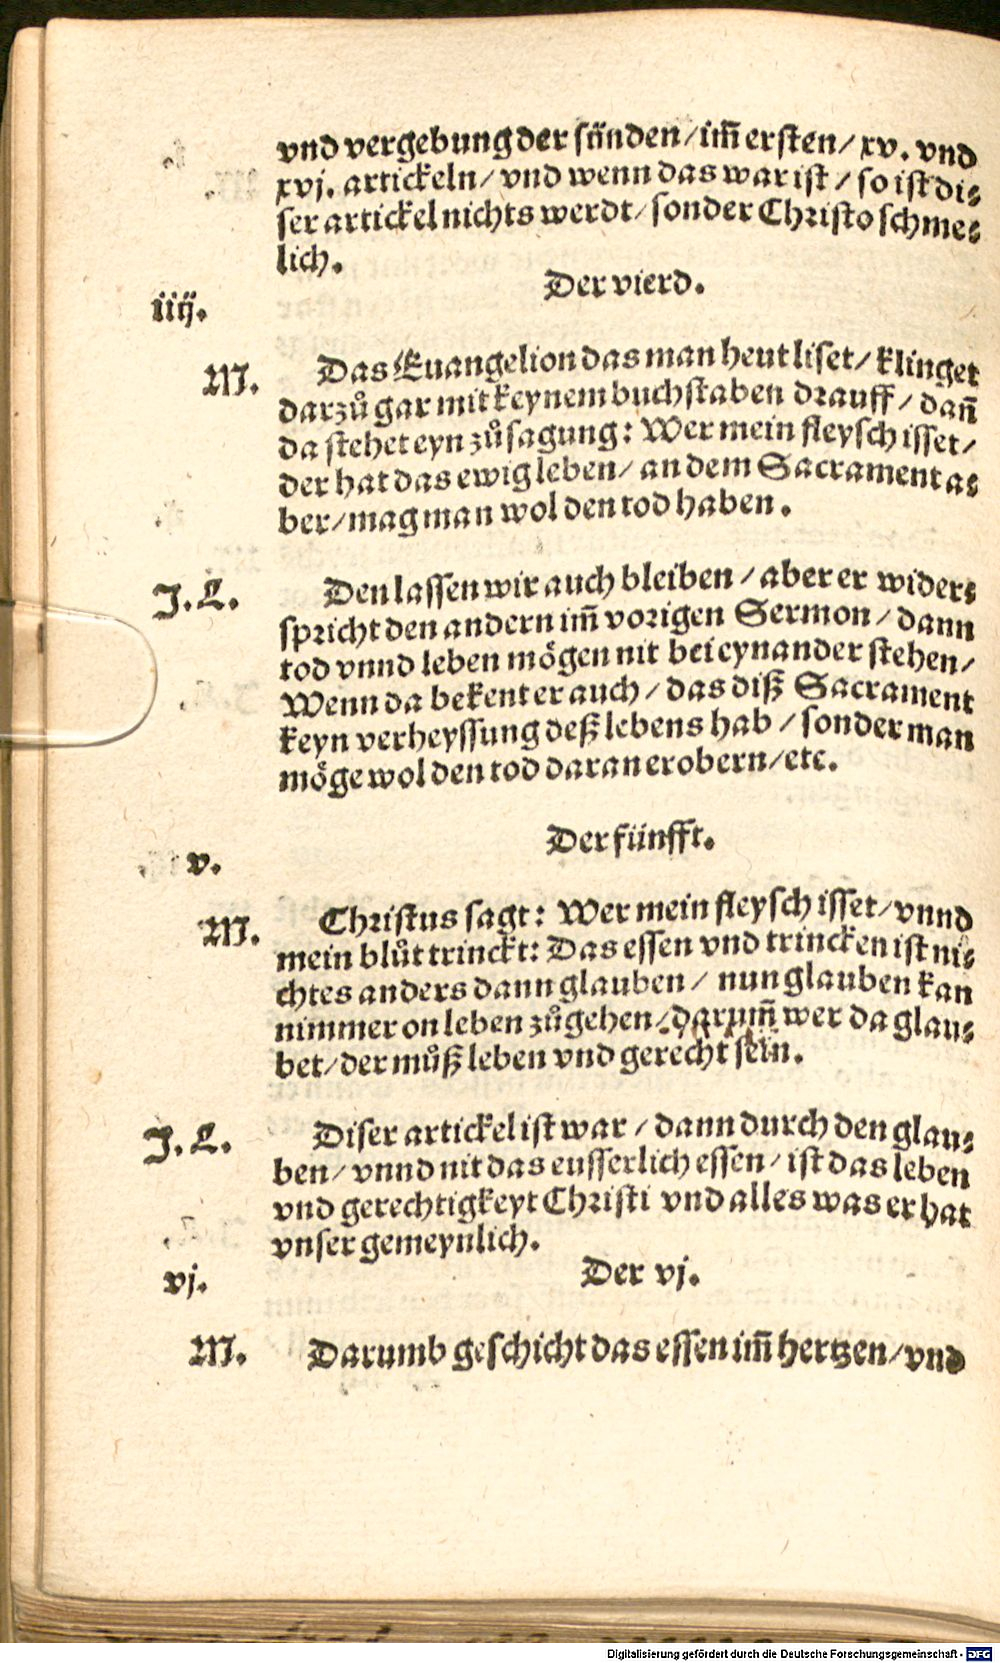 vnd vergebung der sünden/ im̃ ersten/ xv. vnd
xvj. artickeln/ vnd wenn das war ist/ so ist di⸗
ser artickel nichts werdt/ sonder Christo schme⸗
lich.
Der vierd.
iiij.
M. Das Euangelion das man heut liset/ klinget
darzů gar mit keynem buchstaben drauff/ dañ
da stehet eyn zůsagung: Wer mein fleysch isset/
der hat das ewig leben/ an dem Sacrament a⸗
ber/ mag man wol den tod haben.
J. L. Den lassen wir auch bleiben/ aber er wider⸗
spricht den andern im̃ vorigen Sermon/ dann
tod vnnd leben mögen nit bei eynander stehen/
Wenn da bekent er auch/ das diß Sacrament
keyn verheyssung deß lebens hab/ sonder man
möge wol den tod daran erobern/ etc.
Der fünfft.
v.
M. Christus sagt: Wer mein fleysch isset/ vnnd
mein blůt trinckt: Das essen vnd trincken ist ni⸗
chtes anders dann glauben/ nun glauben kan
nimmer on leben zůgehen/ darum̃ wer da glau⸗
bet/ der můß leben vnd gerecht sein.
J. L. Diser artickel ist war/ dann durch den glau⸗
ben/ vnnd nit das eusserlich essen/ ist das leben
vnd gerechtigkeyt Christi vnd alles was er hat
vnser gemeynlich.
vj. Der vj.
M. Darumb geschicht das essen im̃ hertzen/ vnd
Digitalisierung gefördert durch die Deutsche Forschungsgemeinschaft - DFG